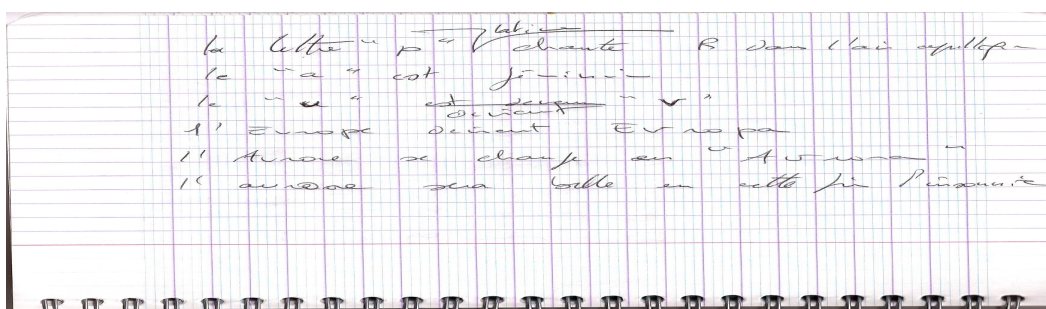 la lettre "p" latine chante R dans l'air
le "a" est féminin
le "u" devient "v"
l'Europe devient Evropa
l'Aurore se change en "Avrora"
l'aurore sera belle en cette fin